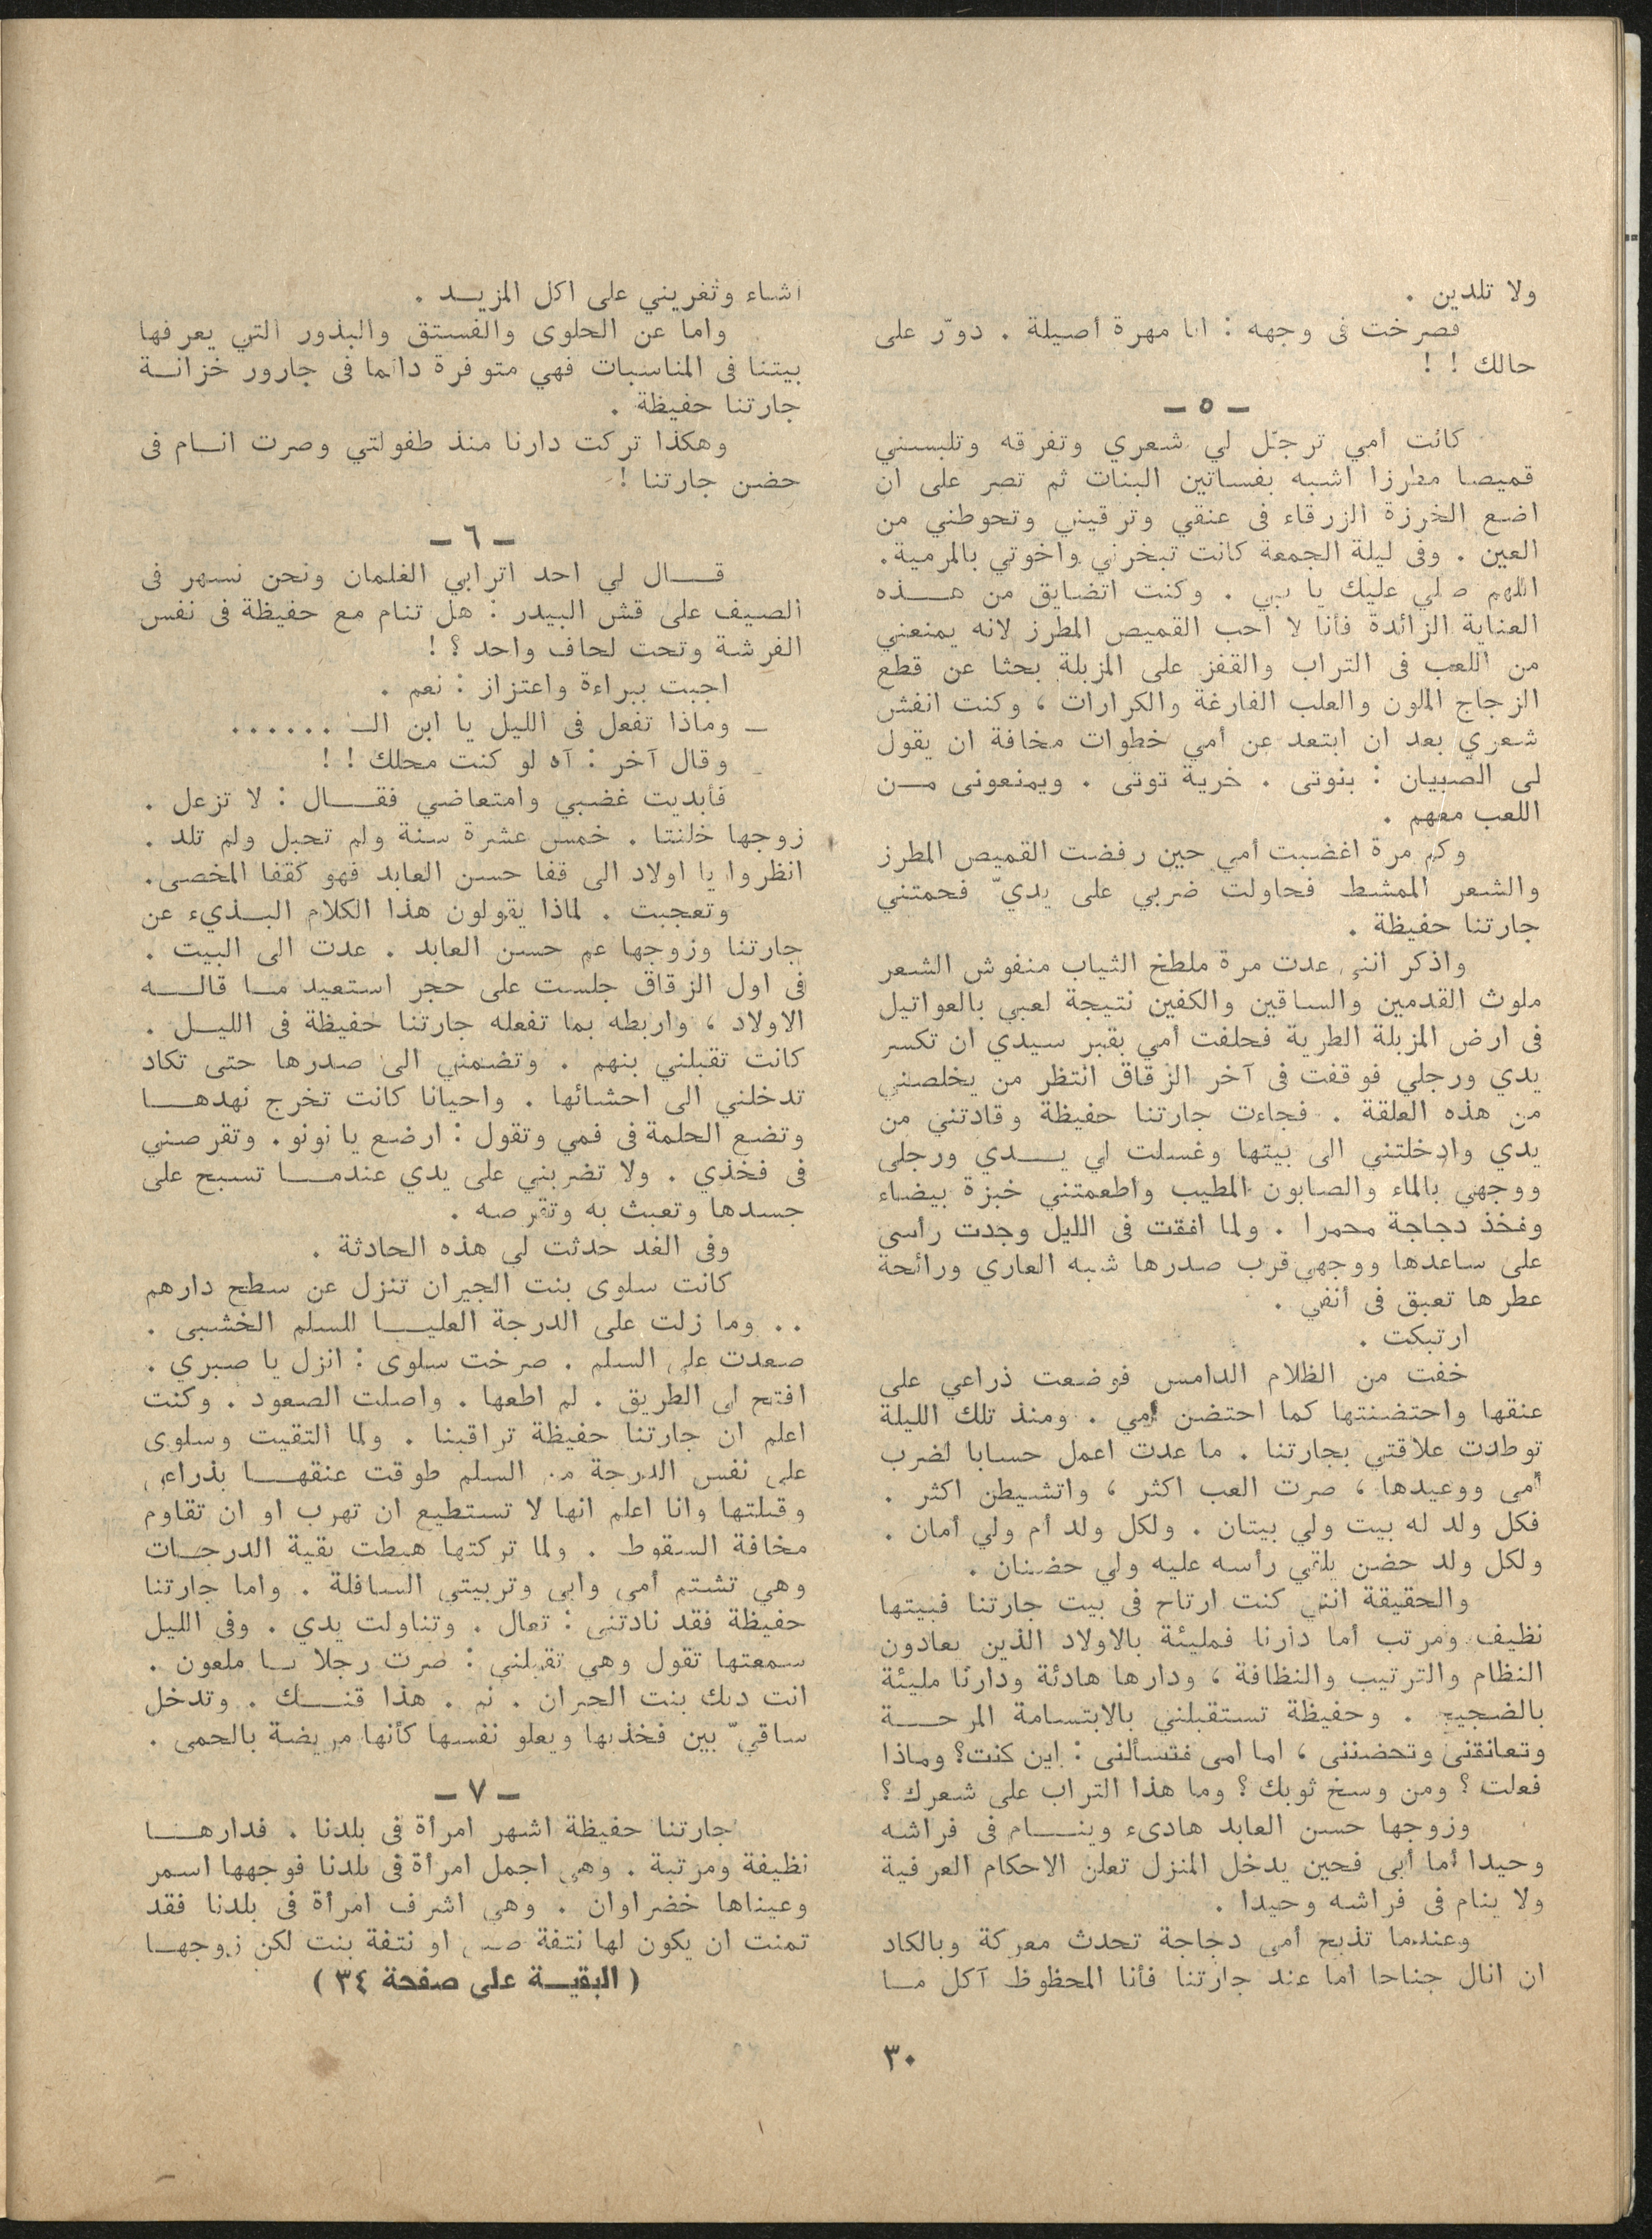 ولا تلدين .
فصرخت فى وجهه : انا مهرة أصيلة . دوّر على
حالك ! !
ـ ٥ ـ
كانت أمي ترجّل لي شعري وتفرقه وتلبسني
قميصا مطرزا اشبه بفساتين البنات ثم تصر على ان
اضع الخرزة الزرقاء فى عنقي وترقيني وتحوطني من
العين . وفى ليلة الجمعة كانت تبخرني واخوتي بالمرمية.
اللهم صلي عليك يا نبي . وكنت اتضايق من هـــذه
العناية الزائدة فأنا لا احب القميص المطرز لانه يمنعني
من اللعب فى التراب والقفز على المزبلة بحثا عن قطع
الزجاج الملون والعلب الفارغة والكرارات ، وكنت انفش
شعري بعد ان ابتعد عن أمي خطوات مخافة ان يقول
لى الصبيان : بنوتى . خرية توتى . ويمنعونى مــن
اللعب معهم .
وكم مرة اغضبت أمي حين رفضت القميص المطرز
والشعر الممشط فحاولت ضربي على يديّ فحمتني
جارتنا حفيظة .
واذكر انني عدت مرة ملطخ الثياب منفوش الشعر
ملوث القدمين والساقين والكفين نتيجة لعبي بالعواتيل
فى ارض المزبلة الطرية فحلفت أمي بقبر سيدي ان تكسر
يدي ورجلي فوقفت فى آخر الزقاق انتظر من يخلصني
من هذه العلقة . فجاءت جارتنا حفيظة وقادتني من
يدي وادخلتني الى بيتها وغسلت لي يـــدي ورجلى
ووجهي بالماء والصابون المطيب واطعمتني خبزة بيضاء
وفخذ دجاجة محمرا . ولما افقت فى الليل وجدت رأسى
على ساعدها ووجهي قرب صدرها شبه العاري ورائحة
عطرها تعبق فى أنفي .
ارتبكت .
خفت من الظلام الدامس فوضعت ذراعي على
عنقها واحتضنتها كما احتضن أمي . ومنذ تلك الليلة
توطدت علاقتي بجارتنا . ما عدت اعمل حسابا لضرب
أمى ووعيدها ، صرت العب اكثر ، واتشيطن اكثر .
فكل ولد له بيت ولي بيتان . ولكل ولد أم ولي أمان .
ولكل ولد حضن يلقي رأسه عليه ولي حضنان .
والحقيقة انني كنت ارتاح فى بيت جارتنا فبيتها
نظيف ومرتب أما دارنا فمليئة بالاولاد الذين يعادون
النظام والترتيب والنظافة ، ودارها هادئة ودارنا مليئة
بالضجيج . وحفيظة تستقبلني بالابتسامة المرحـــة
وتعانقني وتحضننى ، اما امى فتسألنى : اين كنت؟ وماذا
فعلت ؟ ومن وسخ ثوبك ؟ وما هذا التراب على شعرك ؟
وزوجها حسن العابد هادىء وينـــام فى فراشه
وحيدا أما أبي فحين يدخل المنزل تعلن الاحكام العرفية
ولا ينام فى فراشه وحيدا .
وعندما تذبح أمى دجاجة تحدث معركة وبالكاد
ان انال جناحا اما عند جارتنا فأنا المحظوظ آكل مــا
اشاء وتغريني على اكل المزيــد .
واما عن الحلوى والفستق والبذور التي يعرفها
بيتنا فى المناسبات فهي متوفرة دائما فى جارور خزانــة
جارتنا حفيظة .
وهكذا تركت دارنا منذ طفولتي وصرت انــام فى
حضن جارتنا !
ـ ٦ ـ
قـــال لي احد اترابي الغلمان ونحن نسهر فى
الصيف على قش البيدر : هل تنام مع حفيظة فى نفس
الفرشة وتحت لحاف واحد ؟ !
اجبت ببراءة واعتزاز : نعم .
ـ وماذا تفعل فى الليل يا ابن الـ ......
ـ وقال آخر : آه لو كنت محلك ! !
فأبديت غضبي وامتعاضي فقـــال : لا تزعل .
زوجها خلنتا . خمس عشرة سنة ولم تحبل ولم تلد .
انظروا يا اولاد الى قفا حسن العابد فهو كقفا المخصى.
وتعجبت . لماذا يقولون هذا الكلام البــذيء عن
جارتنا وزوجها عم حسن العابد . عدت الى البيت .
فى اول الزقاق جلست على حجر استعيد مــا قالـــه
الاولاد ، واربطه بما تفعله جارتنا حفيظة فى الليــل .
كانت تقبلني بنهم . وتضمني الى صدرها حتى تكاد
تدخلني الى احشائها . واحيانا كانت تخرج نهدهـــا
وتضع الحلمة فى فمي وتقول : ارضع يا نونو. وتقرصني
فى فخذي . ولا تضربني على يدي عندمـــا تسبح على
جسدها وتعبث به وتقرصه .
وفى الغد حدثت لي هذه الحادثة .
كانت سلوى بنت الجيران تنزل عن سطح دارهم
.. وما زلت على الدرجة العليـــا للسلم الخشبى .
صعدت على السلم . صرخت سلوى : انزل يا صبري .
افتح لى الطريق . لم اطعها . واصلت الصعود . وكنت
اعلم ان جارتنا حفيظة تراقبنا . ولما التقيت وسلوى
على نفس الدرجة من السلم طوقت عنقهـــا بذراعي
وقبلتها وانا اعلم انها لا تستطيع ان تهرب او ان تقاوم
مخافة السقوط . ولما تركتها هبطت بقية الدرجــات
وهي تشتم أمى وابى وتربيتي السافلة . واما جارتنا
حفيظة فقد نادتنى : تعال . وتناولت يدي . وفى الليل
سمعتها تقول وهي تقبلني : صرت رجلا يــا ملعون .
انت ديك بنت الجيران . نم . هذا قنـــك . وتدخل
ساقيّ بين فخذيها ويعلو نفسها كأنها مريضة بالحمى .
ـ ٧ ـ
جارتنا حفيظة اشهر امرأة فى بلدنا . فدارهـــا
نظيفة ومرتبة . وهي اجمل امرأة فى بلدنا فوجهها اسمر
وعيناها خضراوان . وهي اشرف امرأة فى بلدنا فقد
تمنت ان يكون لها نتفة صبي او نتفة بنت لكن زوجهــا
( البقيـــة على صفحة ٣٤ )
٣٠